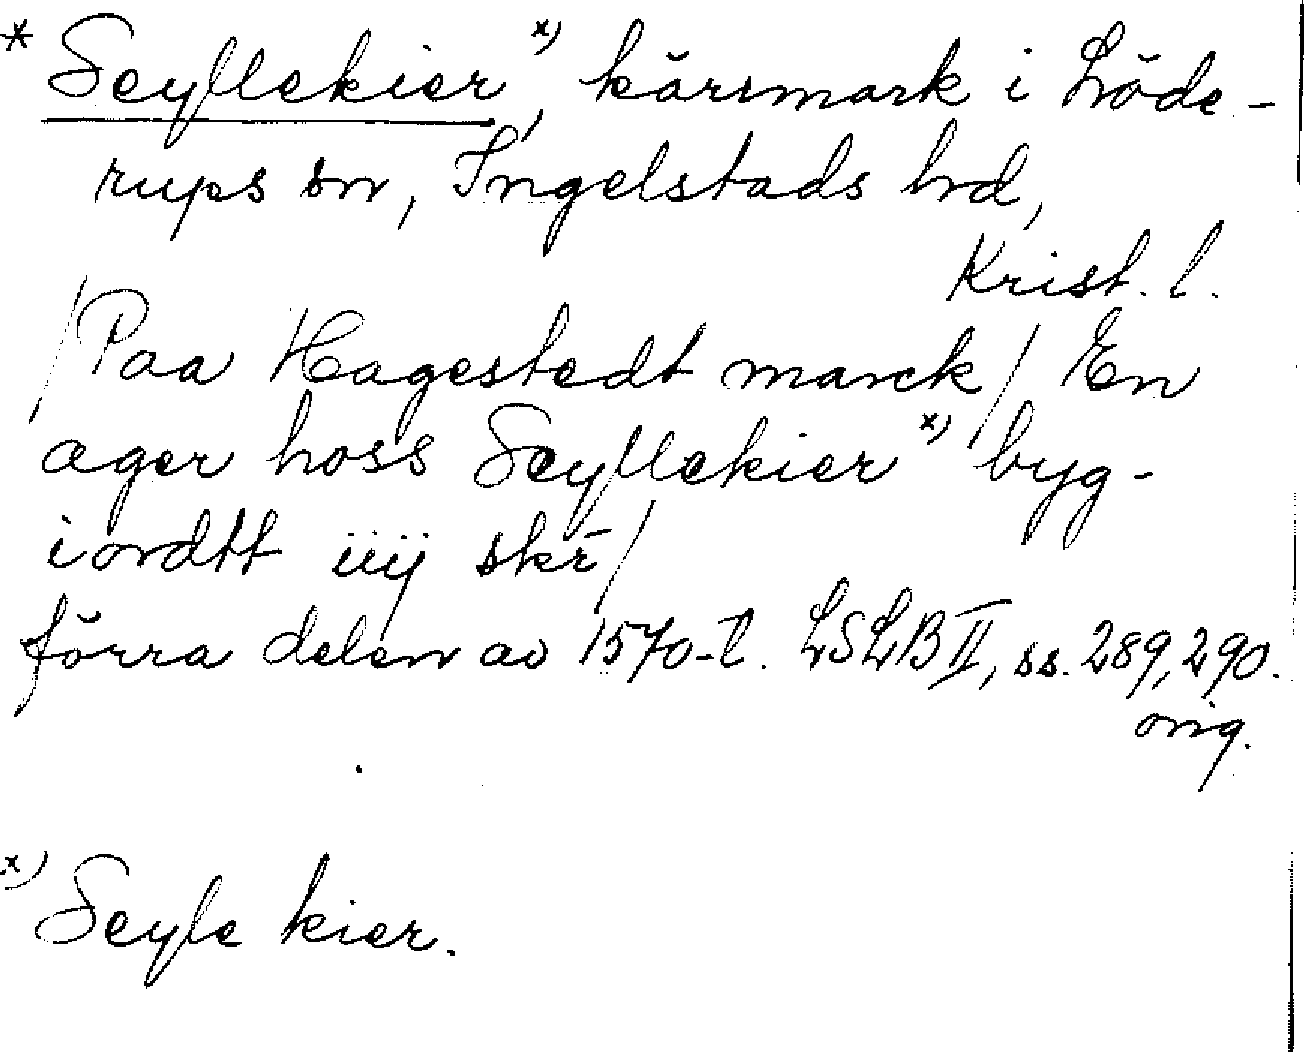 * Seyllekier x), kärrmark i Löde-
rups sn, Ingelstads hd,
Krist. l.
/Paa Hagestedt marck/ En
ager hoss Seyllekier x) byg-
iordtt iiij skr/
förra delen av 1570-t. LSLB II, ss. 289, 290.
orig.
x) Seyle kier.